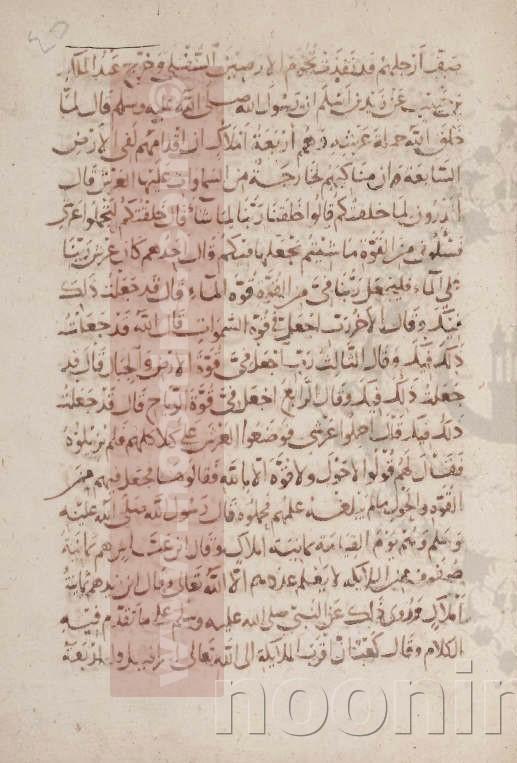 صفق ارجلهم قد نفذت تخوم الارضين السفلى وخرج عبد الملك
بن حبيب عن زيد بن اسلم ان رسول الله صلى الله عليه وسلم قال لما
خلق الله حملة عرشه وهم اربعة املاك ان اقدامهم لفى الارض
السابعة وان مناكبهم لخارجة من السماوات عليها العرش قال
اتدرون لما خلقتكم قالوا خلقتنا ربنا لما تشاء قال خلقتكم لتحملوا عرشى
فسلونى من القوة ما شئتم نجعلها فيكم قال احدهم كان عرش ربنا
على الماء فليجعل ربنا فى من القوة قوة الماء قال قد جعلت ذلك
فيك وقال الاخر رب اجعل فى قوة السموات قال الله قد جعلت
ذلك فيك وقال الثالث رب اجعل فى قوة الارض والجبال قال قد
جعلت ذلك فيك وقال الرابع اجعل فى قوة الرياح قال قد جعلت
ذلك فيك قال احملوا عرشى فوضعوا العرش على كلاكلهم فلم يزيلوه
فقال لهم قولوا لا حول ولا قوة الا بالله فقالوها فجعل فيهم من
القوة والحول ما لم يبلغه علمهم فحملوه قال رسول الله صلى الله عليه
وسلم وهم يوم القيامة ثمانية املاك وقال ابن عباس هم ثمانية
صفوف من الملايكة لا يعلم عددهم الا الله تعالى وقال ابن زيد هم ثمانية
املاك وروى ذلك عن النبى صلى الله عليه وسلم على ما تقدم فيه
الكلام وقال كعب ان اقرب الملايكة الى الله تعالى اسرافيل وله اربعة
noonin
www